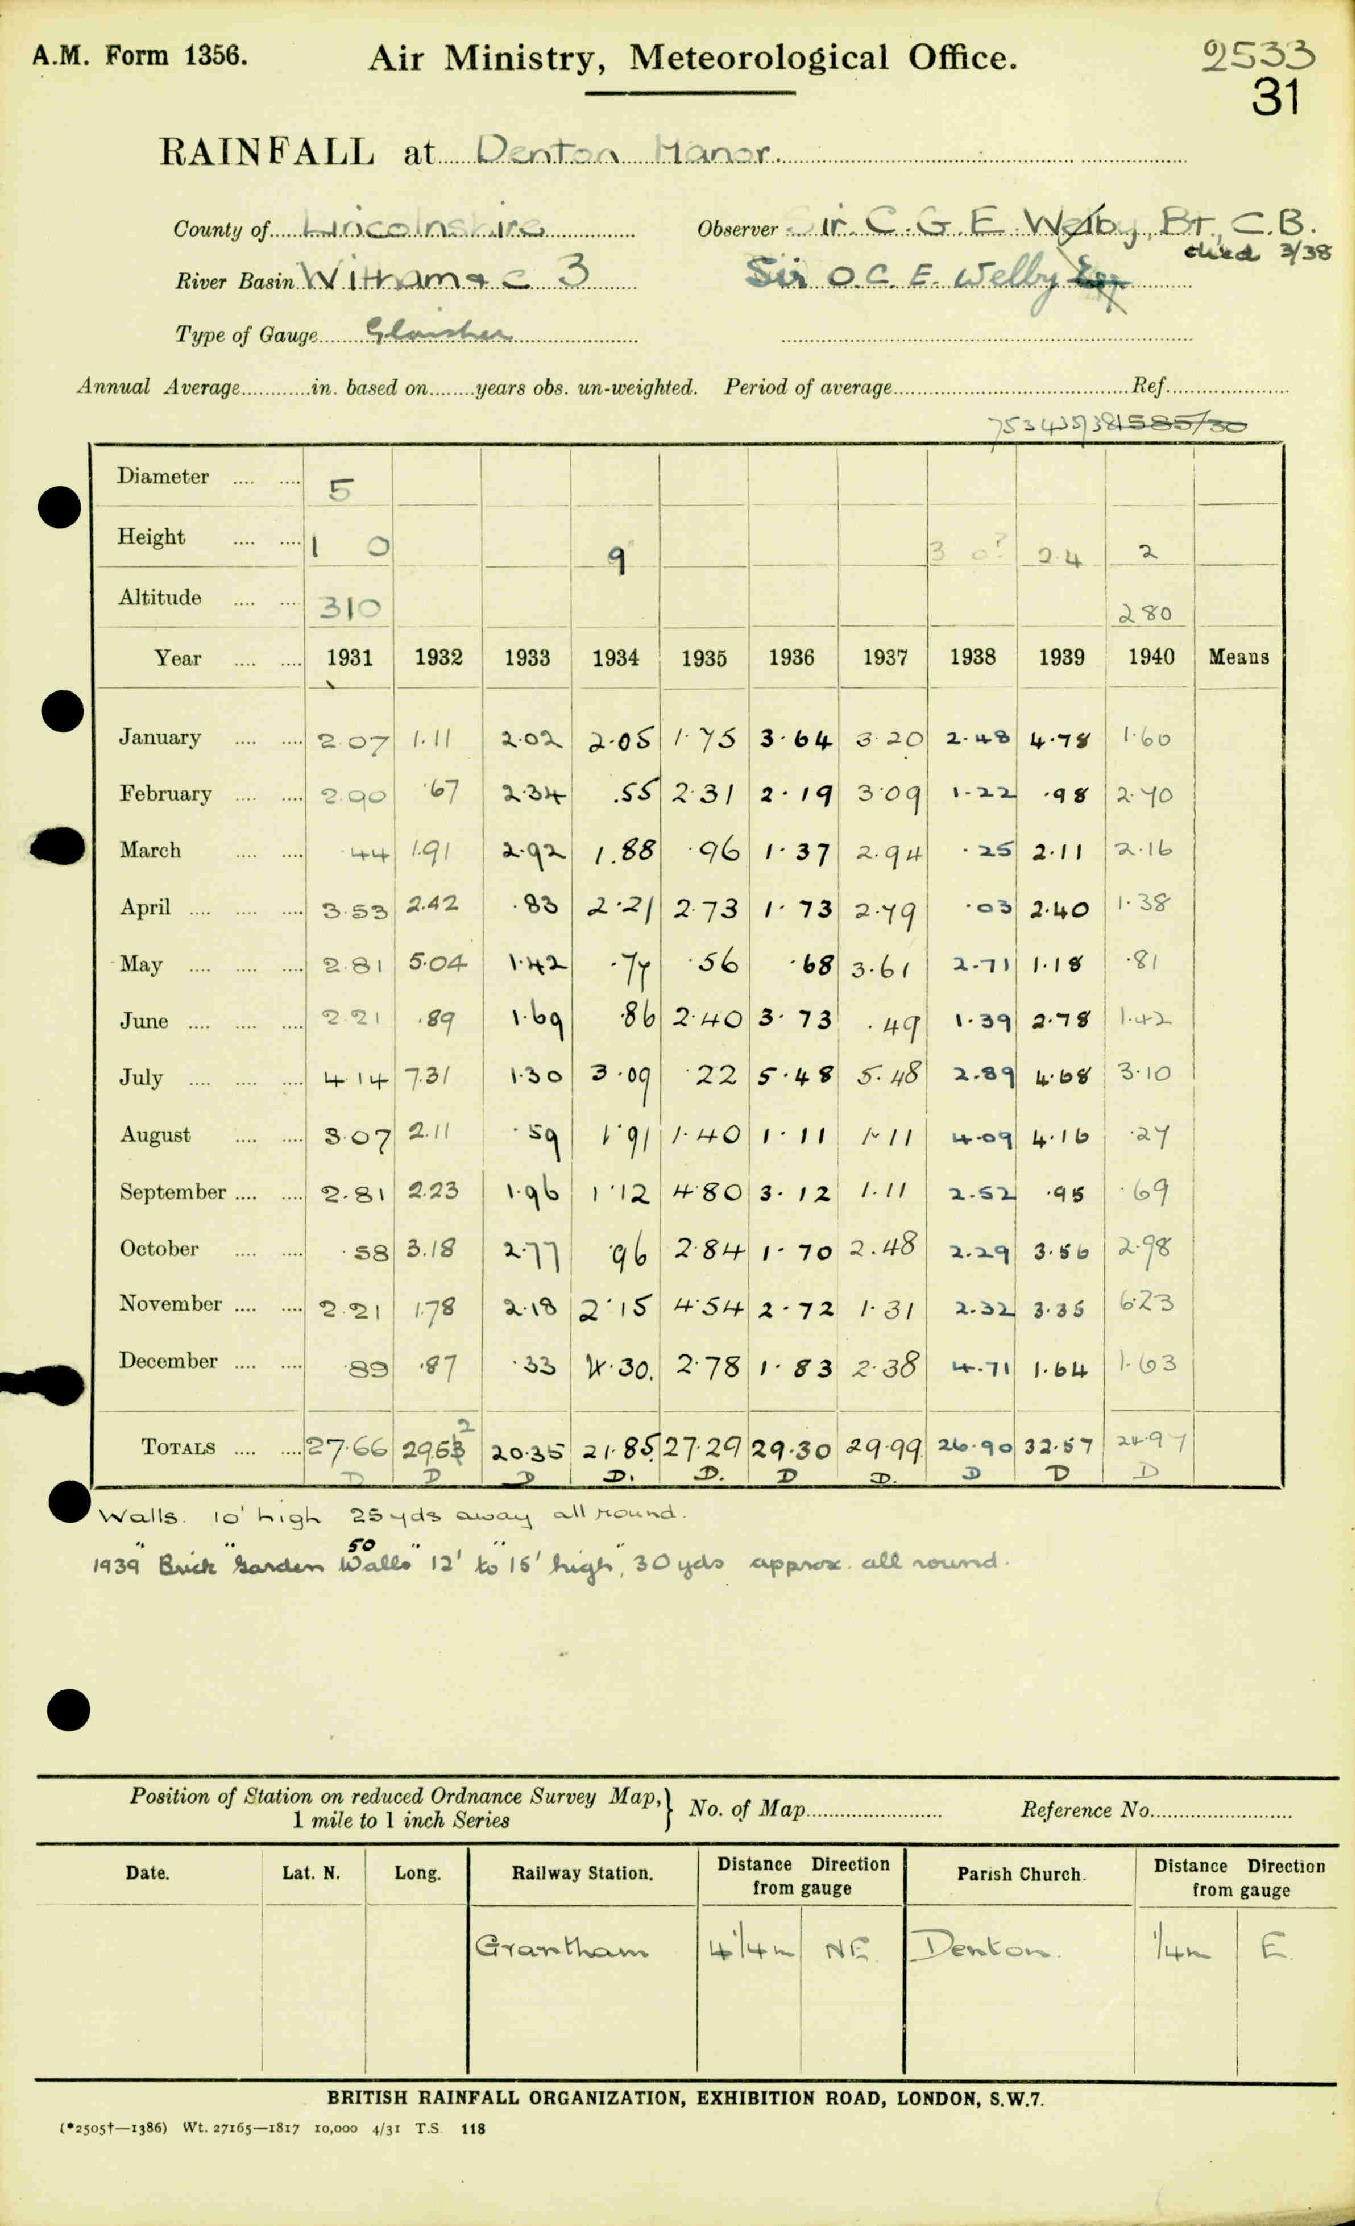 A.M. Form 1356.
Air Ministry, Meteorological Office.
2533
31
RAINFALL at Denton Manor.
County of Lincolnshire Observer Sir C. G. E. Welby, Bt., C.B.
died 3/38
River Basin Witham & c 3 Sir O. C. E. Welby Esq
Type of Gauge Glaisher
Annual Average in. based on years obs. un-weighted. Period of average Ref.
Diameter 5
Height 1 0 9" 3 0? 2.4 2
Altitude 310 280
Year 1931 1932 1933 1934 1935 1936 1937 1938 1939 1940 Means
January 2.07 1.11 2.02 2.05 1.75 3.64 3.20 2.48 4.78 1.60
February 2.90 .67 2.34 .55 2.31 2.19 3.09 1.22 .98 2.70
March .44 1.91 2.92 1.88 .96 1.37 2.94 .25 2.11 2.16
April 3.53 2.42 .83 2.21 2.73 1.73 2.79 .03 2.40 1.38
May 2.81 5.04 1.42 .77 .56 .68 3.61 2.71 1.18 .81
June 2.21 .89 1.69 .86 2.40 3.73 .49 1.39 2.78 1.42
July 4.14 7.31 1.30 3.09 .22 5.48 5.48 2.89 4.68 3.10
August 3.07 2.11 .59 1.91 1.40 1.11 1.11 4.09 4.16 .27
September 2.81 2.23 1.96 1.12 4.80 3.12 1.11 2.52 .95 .69
October .58 3.18 2.77 .96 2.84 1.70 2.48 2.29 3.56 2.98
November 2.21 1.78 2.18 2.15 4.54 2.72 1.31 2.32 3.35 6.23
December .89 .87 .33 4.30. 2.78 1.83 2.38 4.71 1.64 1.63
TOTALS 27.66 29.52 20.35 21.85. 27.29 29.30 29.99 26.90 32.57 24.97
D D D D. D. D D. D D D
Walls. 10' high 25 yds away all round.
50
1939 "Brick" "Garden Walls" 12' to "15' high", 30 yds approx. all round.
Position of Station on reduced Ordnance Survey Map, 1 mile to 1 inch Series } No. of Map Reference No.
Date. Lat. N. Long. Railway Station. Distance Direction from gauge Parish Church. Distance Direction from gauge
Grantham 4 1/4 m NE Denton. 1/4 m E.
BRITISH RAINFALL ORGANIZATION, EXHIBITION ROAD, LONDON, S.W.7.
(*2505†—1386) Wt. 27165—1817 10,000 4/31 T.S. 118